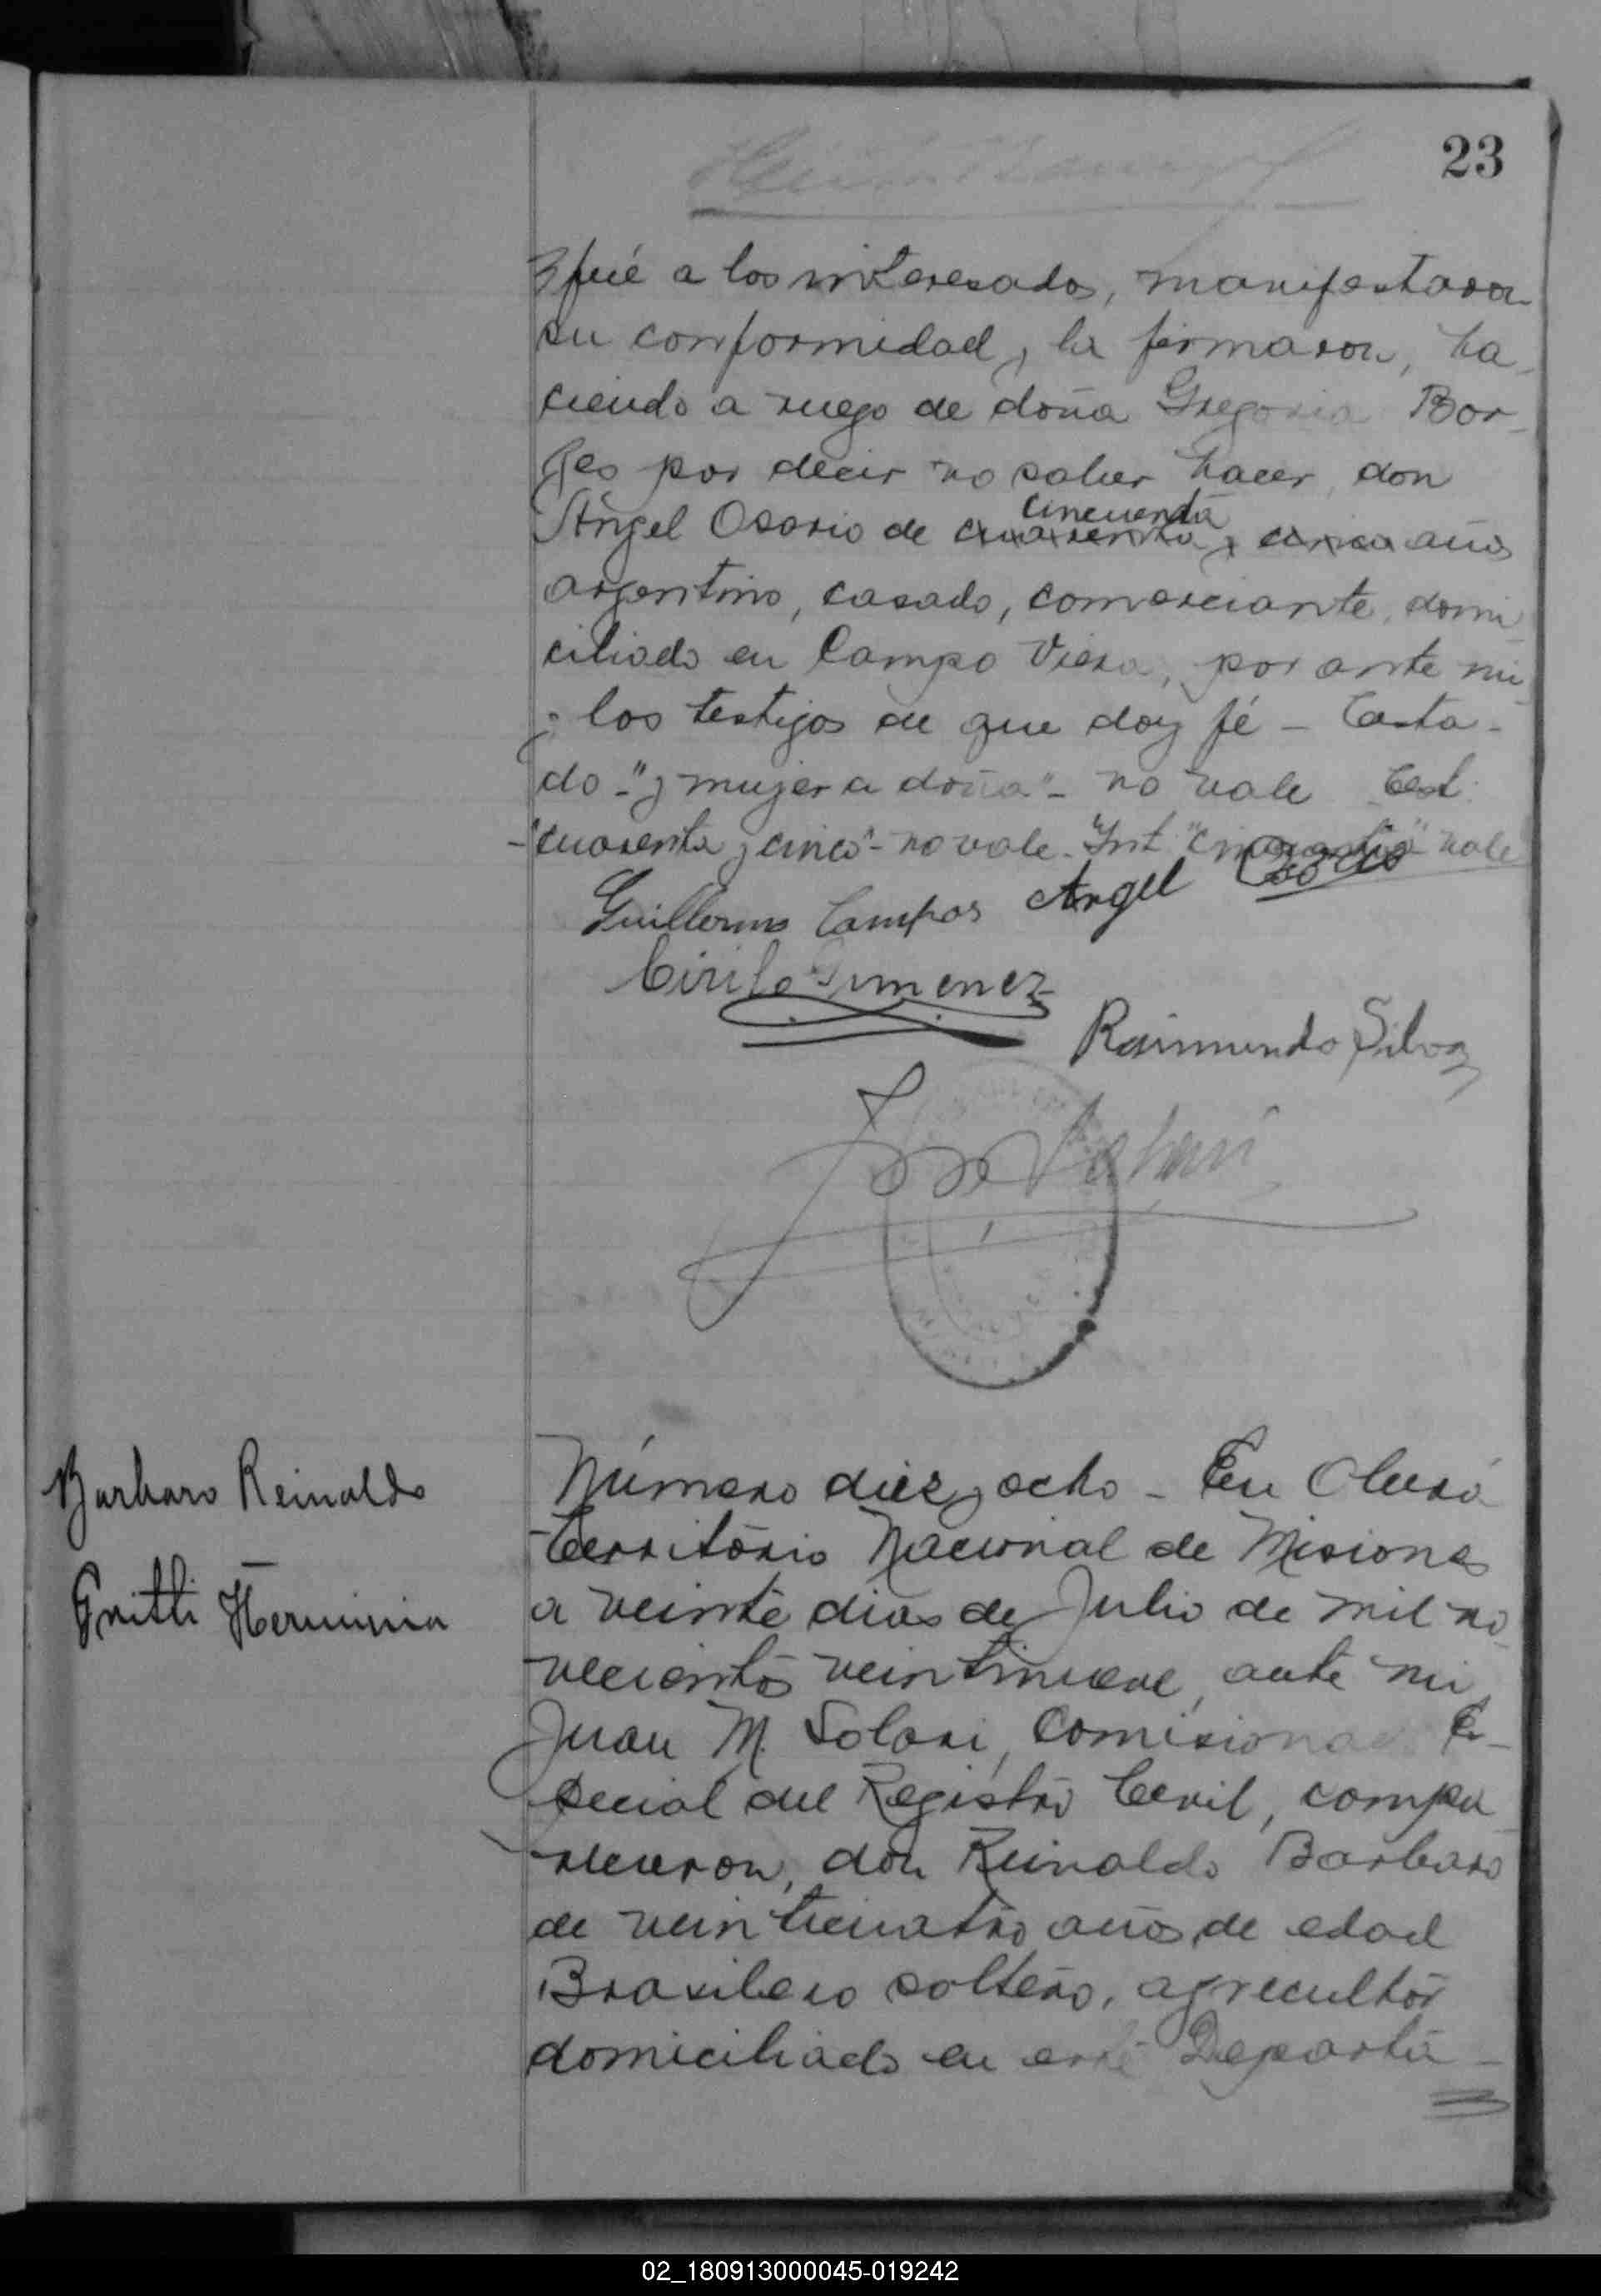 23
y fué a los interesados, manifestaron
su conformidad, la firmaron, ha-
ciendo a ruego de doña Gregoria Bor-
ges por decir no saber hacer, don
cincuenta
Angel Osorio de cuarenta y cinco años
argentino, casado, comerciante, domi-
ciliado en Campo Viera, por ante mi
y los testigos de que doy fé - Testa-
do - "y mujer a doña" - no vale Test.
- "cuarenta y cinco" - no vale - Int. "cincuenta" vale
Guillermo Campos Angel
Cirilo Gimenez
Raimundo Silva
Barbaro Reinaldo
Herminia
Número diez y ocho - En Oberá
Territorio Nacional de Misiones
a veinte dias de Julio de mil no-
vecientos veintinueve, ante mi
Juan M. Solari, Comisionado Es-
pecial del Registro Civil, compa-
recieron, don Reinaldo Barbaro
de veinticuatro años de edad
Brasilero soltero, agricultor
domiciliado en este Departa-
02_180913000045-019242